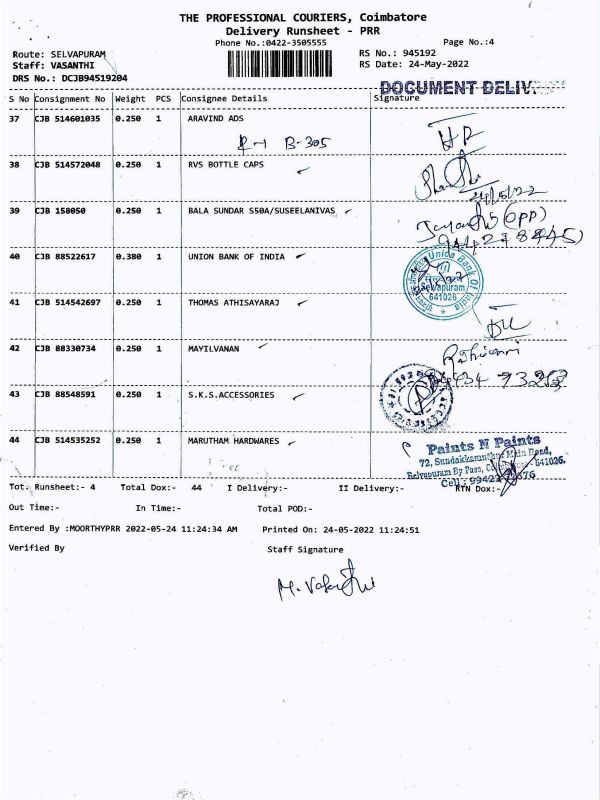 THE PROFESSIONAL COURIERS, Coimbatore
Delivery Runsheet - PRR
Phone No.:0422-3505555 Page No.:4
Route: SELVAPURAM RS No.: 945192
Staff: VASANTHI RS Date: 24-May-2022
DRS No.: DCJB94519204
DOCUMENT DELIV
S No Consignment No Weight PCS Consignee Details Signature
37 CJB 514601035 0.250 1 ARAVIND ADS
B-305
38 CJB 514572048 0.250 1 RVS BOTTLE CAPS
24/5/22
39 CJB 158050 0.250 1 BALA SUNDAR S50A/SUSEELANIVAS
(opp)
40 CJB 88522617 0.380 1 UNION BANK OF INDIA
Union Bank Of India
Selvapuram
641026
41 CJB 514542697 0.250 1 THOMAS ATHISAYARAJ
42 CJB 88330734 0.250 1 MAYILVANAN
43 CJB 88548591 0.250 1 S.K.S.ACCESSORIES
44 CJB 514535252 0.250 1 MARUTHAM HARDWARES
Paints N Paints
72, Sundakkamuthur Main Road,
Selvapuram By Pass, 641026.
Cell : 99422
Tot. Runsheet:- 4 Total Dox:- 44 I Delivery:- II Delivery:- RTN Dox:-
Out Time:- In Time:- Total POD:-
Entered By :MOORTHYPRR 2022-05-24 11:24:34 AM Printed On: 24-05-2022 11:24:51
Verified By Staff Signature
M. Vasanthi